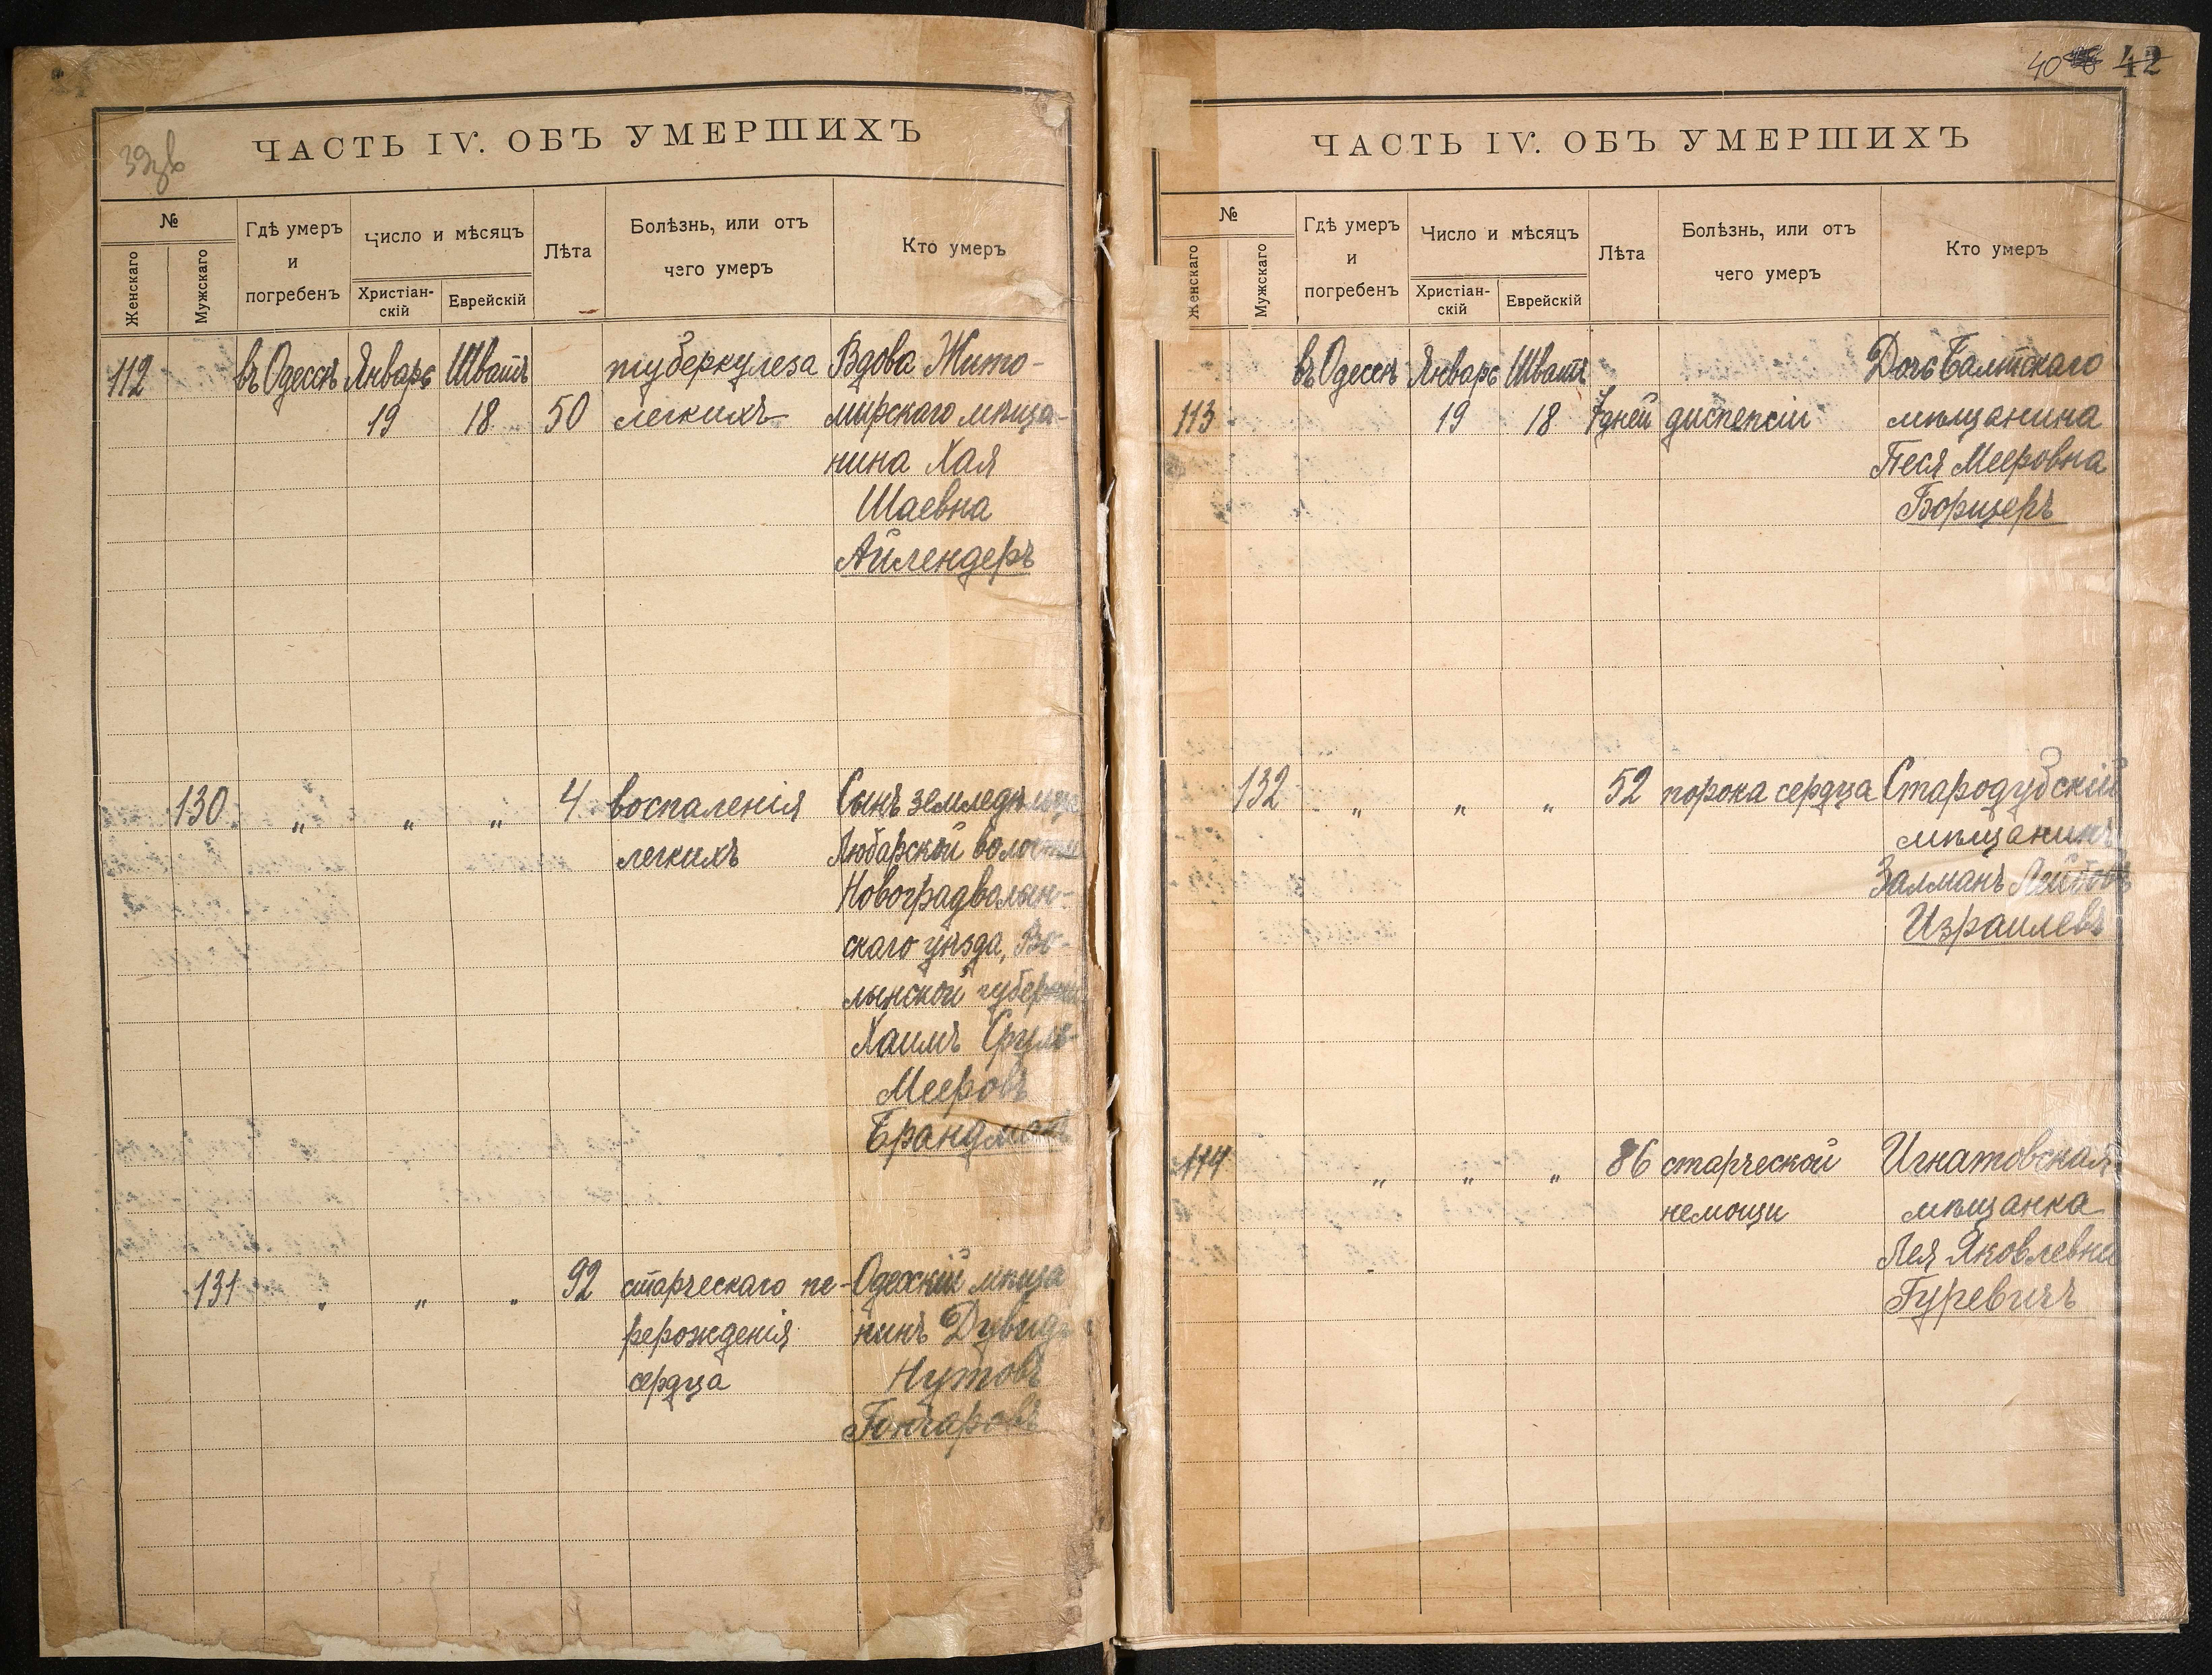 39зв
ЧАСТЬ IV. ОБЪ УМЕРШИХЪ
№
Женскаго
Мужскаго
Гдѣ умеръ
и
погребенъ
Число и мѣсяцъ
Христіан-
скій
Еврейскій
Лѣта
Болѣзнь, или отъ
чего умеръ
Кто умеръ
112 въ Одессѣ Январь Шватъ туберкулеза Вдова Жито-
19 18 50 легкихъ мирскаго мѣща-
нина Хая
Шаевна
Айлендеръ
130 „ „ „ 4 воспаленія Сынъ земледѣльца
легкихъ Любарской волости
Новоградволын-
скаго уѣзда, Во-
лынской губерніи
Хаимъ Сруль
Мееровъ
131 „ „ „ 92 старческаго пе- Одесскій мѣща
рерожденія нинъ Дувидъ
сердца Нутовъ
Гончаровъ
40 42
ЧАСТЬ IV. ОБЪ УМЕРШИХЪ
№
Женскаго
Мужскаго
Гдѣ умеръ
и
погребенъ
Число и мѣсяцъ
Христіан-
скій
Еврейскій
Лѣта
Болѣзнь, или отъ
чего умеръ
Кто умеръ
въ Одессѣ Январь Шватъ Дочь Балтскаго
113 19 18 7 дней диспепсіи мѣщанина
Песя Мееровна
Борщеръ
132 „ „ „ 52 порока сердца Стародубскій
мѣщанинъ
Залманъ Лейбовъ
Израилевъ
114 „ „ „ 86 старческой Игнатовская
немощи мѣщанка
Лея Яковлевна
Гуревичъ